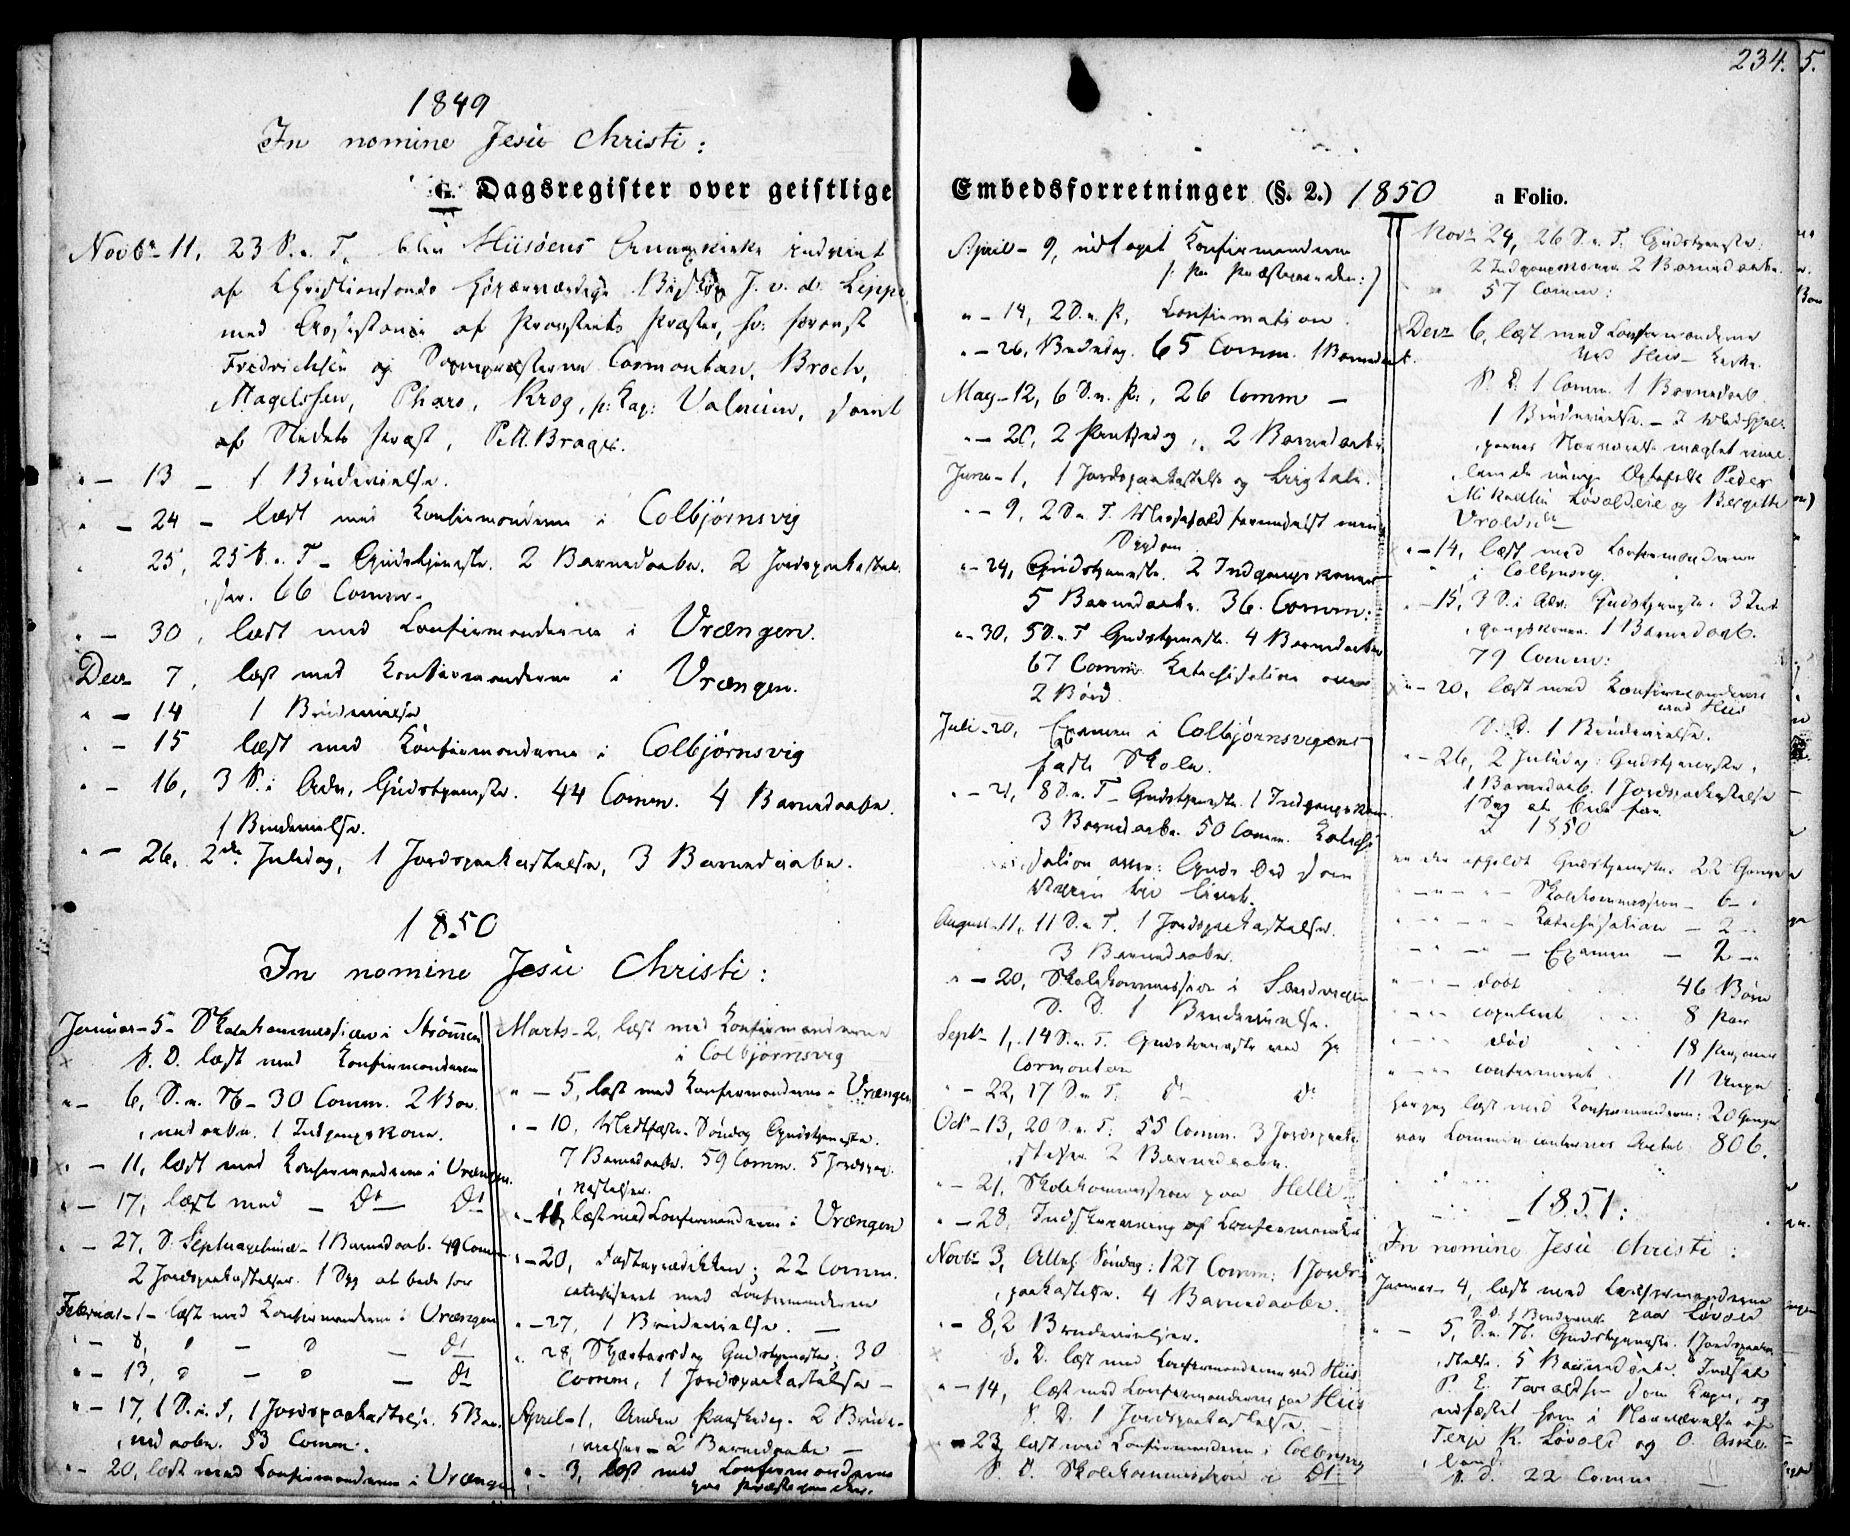 234. 5.
1849
In nomine Jesu Christi:
G. Dagsregister over geistlige
Novbr 11, 23 S. e. T. blev Hiisøens Annexkirke indviet
af Christiansands Høiærværdige Biskop J. v. d. Lippe
med Assistance af Provstiets Præster, Hr: Provst
Fredrichsen og Sognepræsterne Cormontan, Broch,
Magelssen, Pharo, Krog, p: Kap: Valeur, samt
af Stedets Præst,
" — 13 — 1 Brudevielse.
" — 24 — læst med Konfirmanderne i Colbjørnsvig
25, 25 S. e. T — Gudstjeneste. 2 Barnedaabe. 2 Jordspaakastel-
ser. 66 Comm.
" — 30, læst med Confirmanderne i Vrængen.
Decr 7, læst med Konfirmanderne i Vrængen.
" — 14 1 Brudevielse
" — 15 læst med Konfirmanderne i Colbjørnsvig
" — 16, 3 S. i Adv. Gudstjeneste. 44 Comm. 4 Barnedaabe.
1 Brudevielse.
" — 26, 2den Juledag, 1 Jordspaakastelse, 3 Barnedaabe.
1850
In nomine Jesu Christi:
Januar — 5 — Skolekommission i Strømmen
S. D. læst med Konfirmanderne
" — 6, S. e. N — 30 Comm. 2 Bar-
nedaabe. 1 Indgangskone.
" — 11, læst med Konfirmanderne i Vrængen.
" — 17, læst med — Dt — Dt
" — 27, S. Septuagesimæ — 1 Barnedaab. 49 Comm
2 Jordspaakastelser. 1 Syg at bede for
Februar — 1 — læst med Konfirmanderne i Vrængen
" — 8, " — " — Dt
" — 13, " — " — Dt
" — 17, 1 S. i F, 1 Jordspaakastelse. 5 Bar-
nedaabe. 53 Comm.
" — 20, læst med Confirmanderne i Vrængen
Marts — 2, læst med Konfirmanderne
i Colbjørnsvig
" — 5, læst med Konfirmanderne i Vrængen
" — 10, Midfaste Søndag Gudstjeneste.
7 Barnedaabe. 59 Comm. 5 Jordspaa-
kastelser.
" — 11, læst med Confirmanderne i Vrængen
" — 20, Fasteprædiken; 22 Comm.
catechiseret med Confirmanderne
" — 27, 1 Brudevielse. —
" 28, Skjærtorsdag Gudstjeneste; 30
Comm, 1 Jordspaakastelse —
April — 1, Anden Paaskedag. 2 Brude-
vielser — 2 Barnedaabe —
" — 3, læst med Confirmanderne
paa Præstegaarden.
Embedsforretninger (§. 2.) 1850 a Folio.
April — 9, udtaget Konfirmanderne
(: paa Præstegaarden :)
" — 14, 2 S. e. P, Confirmation
" — 26, Bededag. 65 Comm. 1 Barnedaab.
May — 12, 6 S. e. P., 26 Comm —
" — 2 Pintsedag, 2 Barnedaabe
Juni — 1, 1 Jordspaakastelse og Liigtale.
" — 9, 2 S. e. T. Messefald formedelst min
Sygdom
" — 24, Gudstjeneste. 2 Indgangskoner
5 Barnedaabe. 36 Comm:
" — 30, 5 S. e. T Gudstjeneste. 4 Barnedaabe
67 Comm Katechisation over
2 Bøn
Juli — 20, Examen i Colbjørnsvigens
faste Skole.
" — 21, 8 S. e. T — Gudstjeneste. 1 Indgangskone.
3 Barnedaabe. 50 Comm. Katechi-
sation over: Guds Ord som
Veien til Livet.
August — 11, 11 S. e. T. 1 Jordspaakastelse.
3 Barnedaabe.
" — 20, Skolekommission i Sandvigen
S. D. 1 Brudevielse.
Septr — 1, 14 S. e. T. Gudstjeneste ved Hr
Cormontan
" — 22, 17 S. e. T. Dt Dt
Octr — 13, 20 S. e. T. 55 Comm. 3 Jordspaaka-
stelser. 2 Barnedaabe.
" — 21, Skolekommission paa Helle
" — 28, Indskrivning af Confirmander
Novbr 3, Alleh. Søndag: 127 Comm: 1 Jords-
paakastelse. 4 Barnedaabe.
" — 8, 2 Brudevielser.
S. D. læst med Confirmanderne ved Hiis
" — 14, læst med Confirmanderne paa Hiis
S. D. 1 Jordspaakastelse —
" — 23, læst med Confirmanderne i Colbjrnsvig
S. D. Skolekommission i Dt
Novr 24, 26 S. e. T. Gudstjeneste:
2 Indgangskoner 2 Barnedaabe.
57 Comm:
Decr 6, læst med Confirmanderne
ved Hiis — Kirke.
S. D. 1 Comm. 1 Barnedaab.
1 Brudevielse. — I Medhjæl-
pernes Nærværelse mæglet mel-
lem de unge Ægtefolk Peder
Mikkelsen Løvoldeie og Bergitte
Vroldsdtr
" — 14, læst med Confirmanderne
i Colbjnsvig.
" — 15, 3 S. i Adv: Gudstjeneste. 3 Ind-
gangskoner. 1 Barnedaab.
79 Comm:
" — 20, læst med Konfirmanderne
ved Hiis
S. D. 1 Brudevielse.
" — 26, 2 Juledag: Gudstjeneste.
1 Barnedaab. 1 Jordspaakastelse
1 Syg at bede for
I 1850
er der afholdt Gudstjeneste: 22 Gange
" — " — " Skolekommission — 6 — "
" — " — " Katechisation — 2 — "
" — " — " — Examen — 2 — "
" — " — døbt 46 Børn
" — " copuleret 8 Par
" — " død 18 Personer
" — " confirmeret 11 Unge
har jeg læst med Konfirmanderne: 20 Gange
var Communicanternes Antal 806.
1851:
In nomine Jesu Christi:
Januar — 4, læst med Confirmanderne
S. D. 1 Brudevielse paa Løvold
" — 5, S. e. N. Gudstjeneste. 1 Jordspaaka-
stelse. 5 Barnedaabe. Indsat
P. E. Taraldsen som Kape, og
edfæstet ham i Nærværelse af
Terje K. Løvold og O. Aske-
land
S. D. 22 Comm